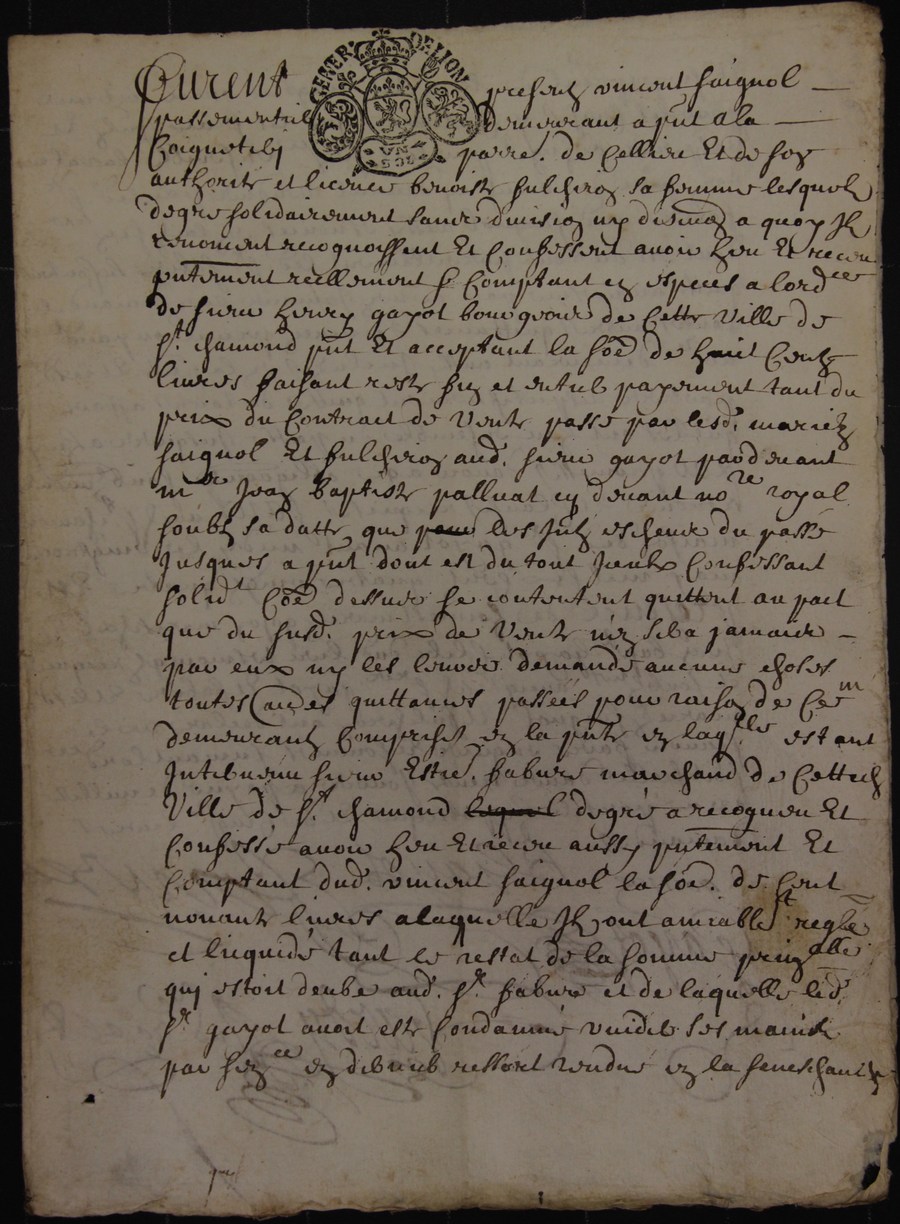 GENER. DE LION
furent presentz vincent faignol
passementie demeurant a put a la
parre. de Cellieu Et de son
authorité et licence benoiste fulchiron sa femme lesquelz
degre solidairement sans division ny discution a quoy Ilz
renoncent recognoissent Et Confessent avoir heu Et receu
putement reellement & Comptant en especes a lordce
de sieur henry gayot bourgeois de Cette Ville de
St. chamond put Et acceptant la soe de huit Centz
livres faisant reste fin et entier payement tant du
prix du Contract de Vente passé par lesd. mariez
faignol Et fulchiron aud. sieur gayot pardevant
me Jean Baptiste palluat cy devant nore royal
soubz sa datte, que pour des intz escheus du passé
Jusques a put dont est du tout Iceulx Confessant
solidt Coe dessus se contentent quittent au pact
que du susd. prix de Vente n'en sera jamais
par eux ny les leurs demandé aucune choses
toutes au es quittances passées pour raison de Ce
demeurantz Comprises en la pute en laqlle estant
Intervenu sieur Estie. fabure marchand de Cette
Ville de St. chamond lequel degré a recogneu Et
Confessé avoir heu Et receu aussy putement Et
Comptant dud. vincent faignol la soe. de Cent
nonante livres a laquelle Ilz ont amiablet reglé
et liquidé tant le restat de la somme prinalle
qui estoit deube aud. Sr. fabure et de laquelle led.
Sr gayot avoit esté Condamné vuider ses mains
par sence en dernier ressort rendue en la seneschaucée